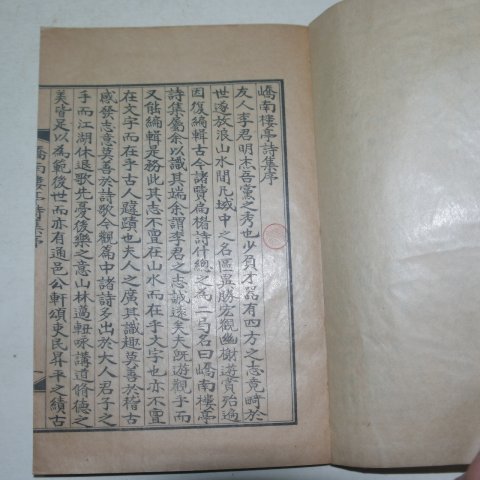 嶠南樓亭詩集序
友人李君明杰吾黨之秀也少負才器有四方之志竟畸於
世遂放浪山水間凡域中之名區盈勝宏觀幽榭遊賞殆遍
因復編輯古今諸賢扁楣詩什總之為二弓名曰嶠南樓亭
詩集屬余以識其端余謂李君之志誠遠矣夫旣遊觀乎而
又能編輯是務此其志不亶在山水而在乎文字也亦不亶
在文字而在乎古人躂蹟也夫人之廣其識趣莫善於稽古
感發志意莫善於詩歌今觀篇中諸詩多出於大人君子之
手而江湖休退歌先憂後樂之意山林薖軸咏講道脩德之
美皆足以為範後世而亦有通邑公軒頌吏民昇平之績古
嶠南樓亭詩集序